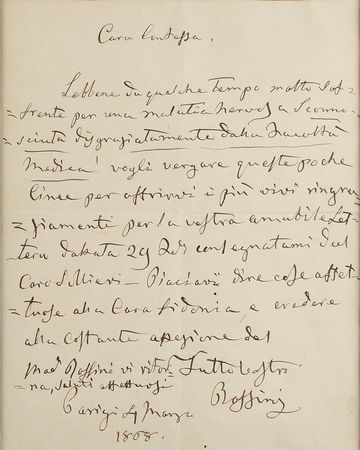 Cara Contessa.
Sebbene da qualche tempo molto sof=
=frente per una malatia nervosa Scono=
=sciuta disgraziatamente dalla Facoltà
Medica! vogli vergare queste poche
linee per offrirvi i più vivi ringra=
=ziamenti per la vostra amabile Let=
=tera datata 29 consegnatami dal
Caro Piacciavi dire cose affet=
=tuose alla Cara Fidonia, e credere
alla costante del
Mad. Rossini vi ritor= Tutto Vostro
=na, saluti affettuosi Rossini
Parigi 4 Marzo
1868.